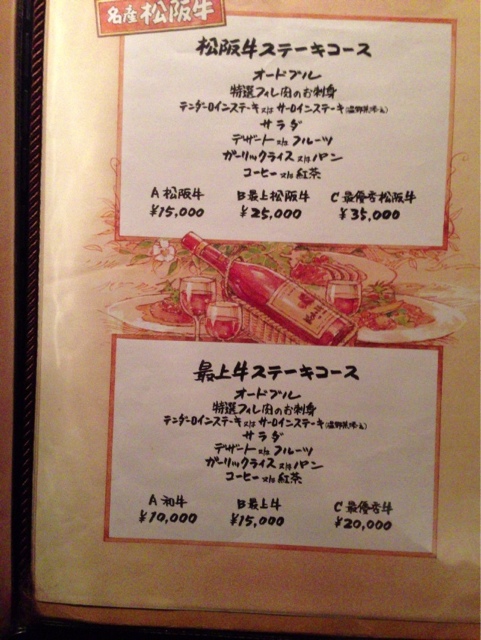 名産 松阪牛
松阪牛ステーキコース
オードブル
特選フィレ肉のお刺身
テンダーロインステーキ又はサーロインステーキ(温野菜添え)
サラダ
デザート又はフルーツ
ガーリックライス又はパン
コーヒー又は紅茶
A 松阪牛 B 最上松阪牛 C 最優秀松阪牛
¥15,000 ¥25,000 ¥35,000
最上牛ステーキコース
オードブル
特選フィレ肉のお刺身
テンダーロインステーキ又はサーロインステーキ(温野菜添え)
サラダ
デザート又はフルーツ
ガーリックライス又はパン
コーヒー又は紅茶
A 和牛 B 最上牛 C 最優秀牛
¥10,000 ¥15,000 ¥20,000